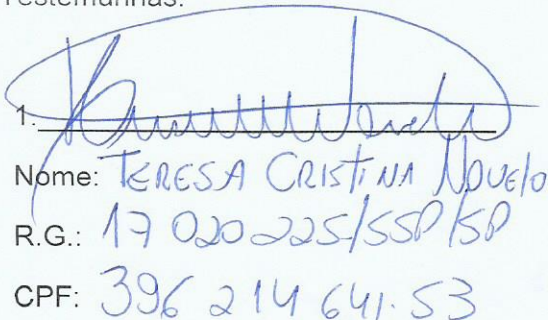 Testemunhas:
1.
Nome: TERESA CRISTINA NOVElo
R.G.: 17 020 225/SSP/SP
CPF: 396 214 641-53